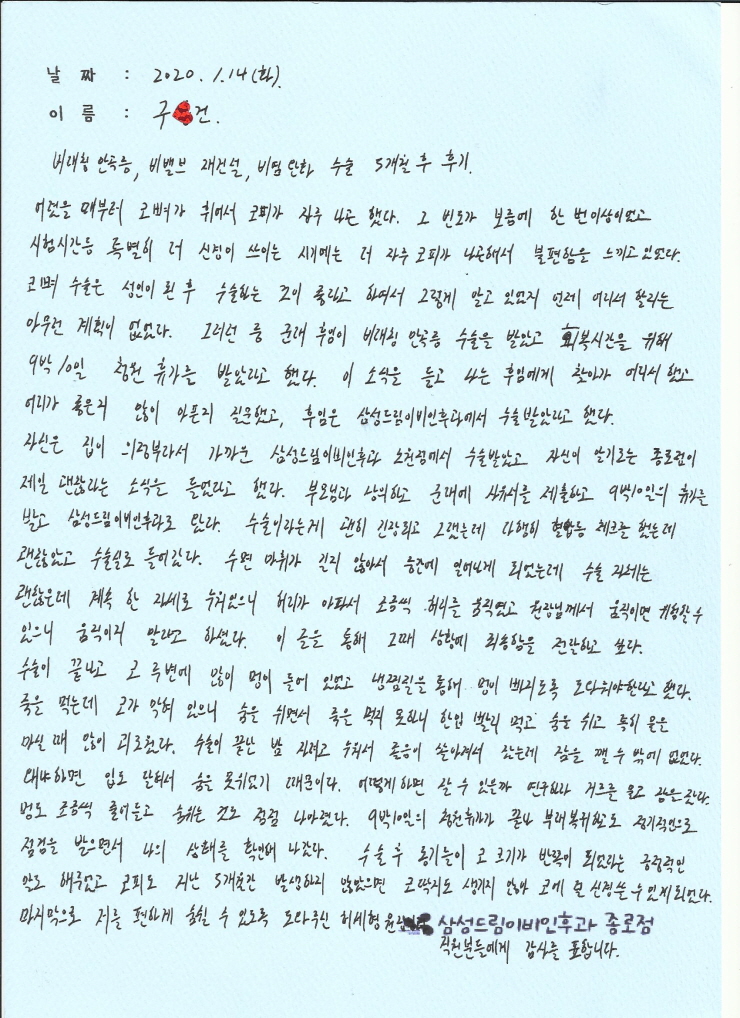 날 짜 : 2020. 1. 14 (화).
이 름 : 구 건.
비대칭 안곡증, 비밸브 재건설, 비염 완화 수술 5개월 후 후기.
어렸을 때부터 코뼈가 휘어서 코피가 자주 나곤 했다. 그 빈도가 보름에 한 번이상이었고
시험시간등 특별히 더 신경이 쓰이는 시기에는 더 자주 코피가 나곤해서 불편함을 느끼고 있었다.
코뼈 수술은 성인이 된 후 수술하는 것이 좋다고 하여서 그렇게 알고 있었지 언제 어디서 할지는
아무런 계획이 없었다. 그러던 중 군대 후임이 비대칭 안곡증 수술을 받았고 회복시간을 위해
9박 10일 청원 휴가를 받았다고 했다. 이 소식을 듣고 나는 후임에게 찾아가 어디서 했고
어디가 좋은지 많이 아픈지 질문했고, 후임은 삼성드림이비인후과에서 수술받았다고 했다.
자신은 집이 의정부라서 가까운 삼성드림이비인후과 노원점에서 수술받았고 자신이 알기로는 종로점이
제일 괜찮다는 소식을 들었다고 했다. 부모님과 상의하고 군대에 사유서를 제출하고 9박10일의 휴가를
받고 삼성드림이비인후과로 왔다. 수술이라는게 괜히 긴장되고 그랬는데 다행히 혈압등 체크를 했는데
괜찮았고 수술실로 들어갔다. 수면 마취가 길지 않아서 중간에 일어나게 되었는데 수술 자체는
괜찮은데 계속 한 자세로 누워있으니 허리가 아파서 조금씩 허리를 움직였고 원장님께서 움직이면 위험할 수
있으니 움직이지 말라고 하셨다. 이 글을 통해 그때 상황에 죄송함을 전달하고 싶다.
수술이 끝나고 코 주변에 많이 멍이 들어 있었고 냉찜질을 통해 멍이 빠지도록 도와줘야한다고 했다.
죽을 먹는데 코가 막혀 있으니 숨을 쉬면서 죽을 먹지 못하니 한입 빨리 먹고 숨을 쉬고 특히 물을
마실 때 많이 괴로웠다. 수술이 끝난 밤 자려고 누워서 졸음이 쏟아져서 잤는데 잠을 깰 수 밖에 없었다.
왜냐하면 입도 닫혀서 숨을 못쉬었기 때문이다. 어떻게하면 잘 수 있을까 연구하다 거즈를 물고 잠을 잤다.
멍도 조금씩 줄어들고 숨쉬는 것도 점점 나아졌다. 9박10일의 청원휴가가 끝나 부대복귀하고도 정기적으로
점검을 받으면서 나의 상태를 확인해 나갔다. 수술 후 동기들이 코 크기가 반쪽이 되었다는 긍정적인
말도 해주었고 코피도 지난 5개월간 발생하지 않았으면 코딱지도 생기지 않아 코에 덜 신경쓸 수 있게 되었다.
마지막으로 저를 편하게 숨쉴 수 있도록 도와주신 허세형 원장 삼성드림이비인후과 종로점
직원분들에게 감사를 표합니다.